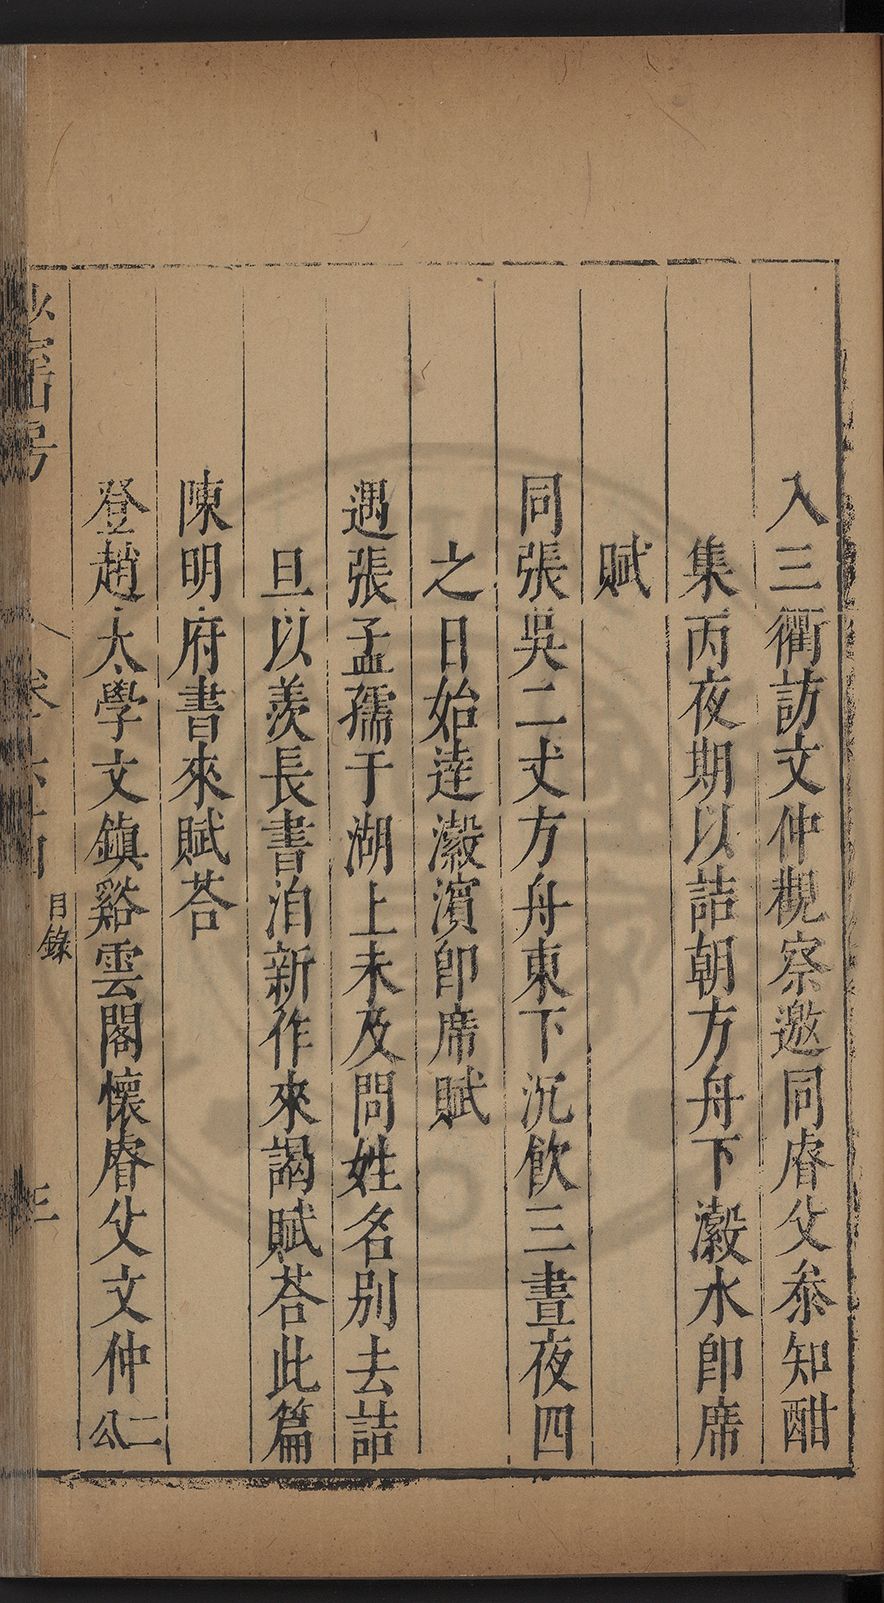 入三衢訪文仲觀察邀同睿父叅知酣
集丙夜期以詰朝方舟下瀫水即席
賦
同張吳二丈方舟東下沉飲三晝夜四
之日始達瀫濱即席賦
遇張孟孺于湖上未及問姓名別去詰
旦以羨長書洎新作來謁賦荅此篇
陳明府書來賦荅
登趙太學文鎮谿雲閣懷睿父文仲二公
山房
目錄
三